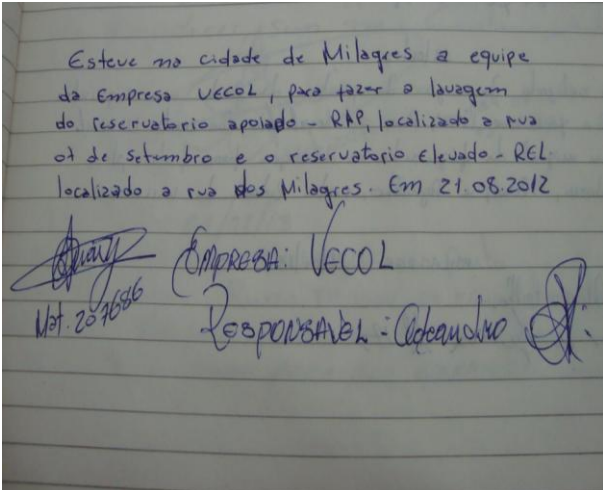 Esteve na cidade de Milagres a equipe
da Empresa VECOL, para fazer a lavagem
do reservatorio apoiado - RAP, localizado a rua
07 de setembro e o reservatorio Elevado - REL
localizado a rua dos Milagres. Em 21.08.2012
EMPRESA: VECOL
Mat. 207686
RESPONSAVEL: